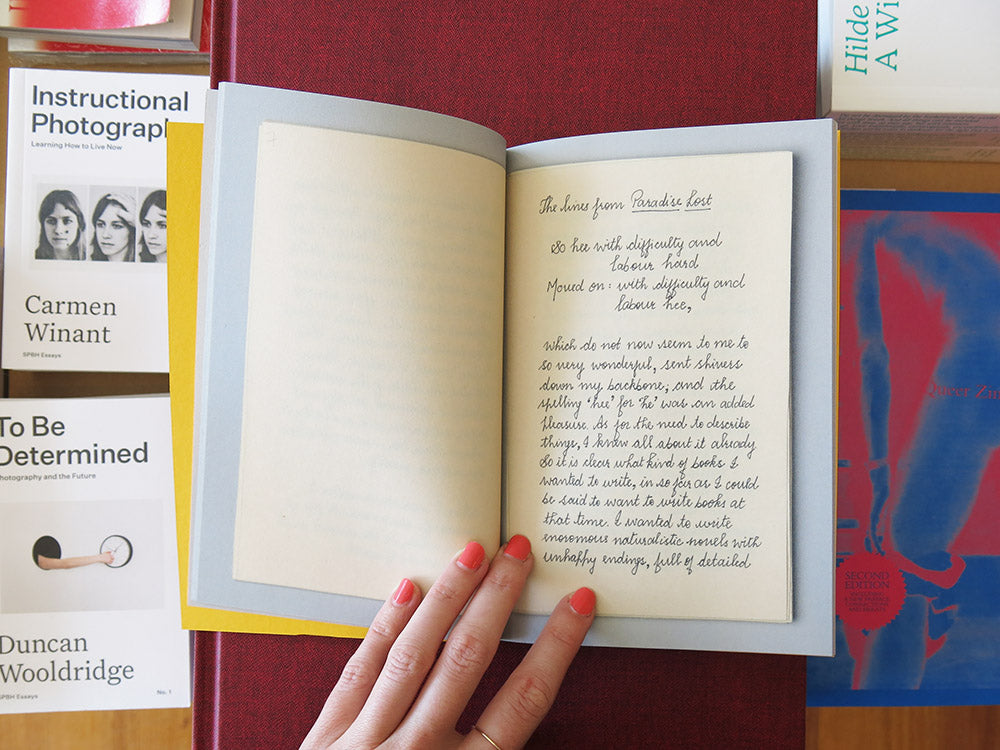 Instructional
Photograph
Learning How to Live Now
Carmen
Winant
SPBH Essays
To Be
Determined
Photography and the Future
Duncan
Wooldridge
SPBH Essays
No. 1
7
The lines from Paradise Lost
So hee with difficulty and
labour hard
Moved on: with difficulty and
labour hee,
which do not now seem to me to
so very wonderful, sent shivers
down my backbone; and the
spelling 'hee' for 'he' was an added
pleasure. As for the need to describe
things, I knew all about it already
So it is clear what kind of books I
wanted to write, in so far as I could
be said to want to write books at
that time. I wanted to write
enormous naturalistic novels with
unhappy endings, full of detailed
Hilde
A Wi
Queer Zin
SECOND
EDITION